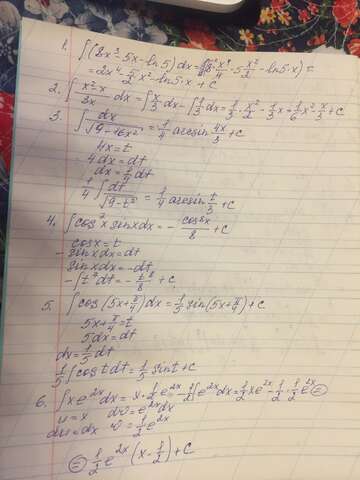 1. ∫(8x³ - 5x - ln5)dx = 8·x⁴/4 - 5·x²/2 - ln5·x) =
= 2x⁴ - 5/2 x² - ln5·x + C
2. ∫ x²-x/3x dx = ∫ x/3 dx - ∫ 1/3 dx = 1/3 · x²/2 - 1/3 x = 1/6 x² - x/3 + C
3. ∫ dx/√(9-16x²) = 1/4 arcsin 4x/3 + C
4x = t
4dx = dt
dx = 1/4 dt
1/4 ∫ dt/√(9-t²) = 1/4 arcsin t/3 + C
4. ∫cos²x sinx dx = - cos⁸x/8 + C
cosx = t
- sinx dx = dt
sinx dx = -dt
- ∫t⁷dt = - t⁸/8 + C
5. ∫cos(5x+π/4)dx = 1/5 sin(5x+π/4) + C
5x+π/4 = t
5dx = dt
dx = 1/5 dt
1/5 ∫cos t dt = 1/5 sin t + C
6. ∫x e^2x dx = x·1/2 e^2x - 1/2 ∫e^2x dx = 1/2 x e^2x - 1/2 · 1/2 e^2x =
u = x dv = e^2x dx
du = dx v = 1/2 e^2x
= 1/2 e^2x (x - 1/2) + C